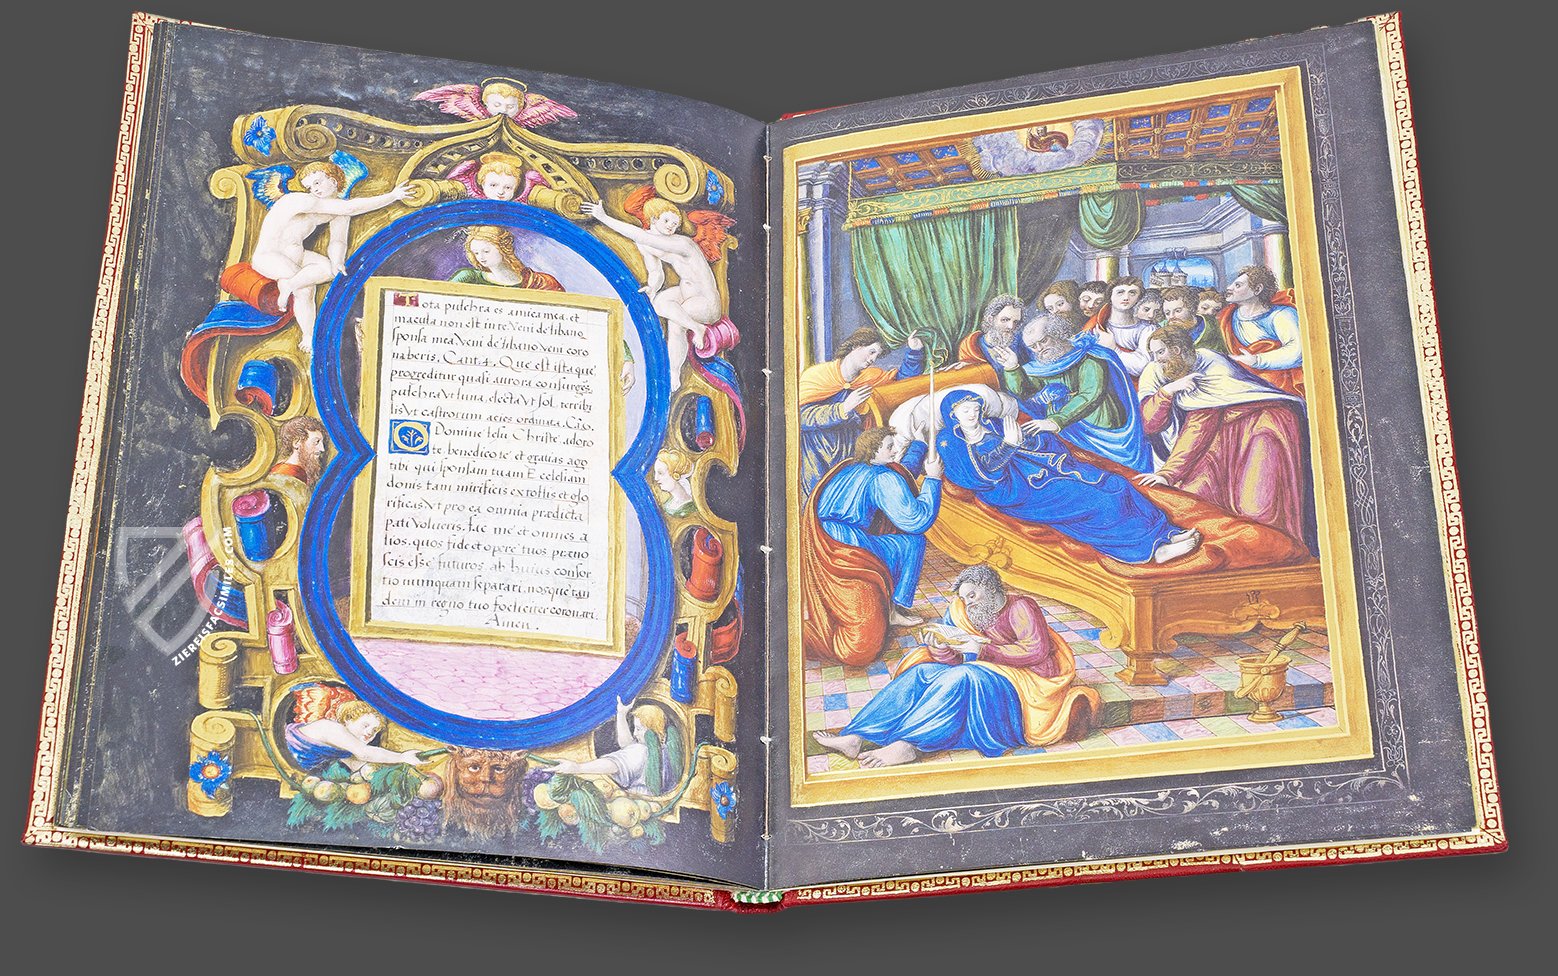 Tota pulchra es amica mea, et
macula non est in te Veni de libano
sponsa mea Veni de libano veni coro
naberis, Cant. 4. Que est ista que
progreditur quasi aurora consurgēs
pulchra ut luna, electa ut sol, terribi
lis ut castrorum acies ordinata. Cto.
O Domine Iesu Christe, adoro
te, benedico te et gratias ago
tibi qui sponsam tuam Ecclesiam
donis tam mirificis extollis et glo
rificas ut pro ea omnia prædicta
pati volueris. Fac me et omnes a
lios, quos fide et opere tuos præno
scis esse futuros ab huius consor
tio nunquam separari, nosque tan
dem in regno tuo foeliciter coronari.
Amen.
ZIEREISFACSIMILES.COM